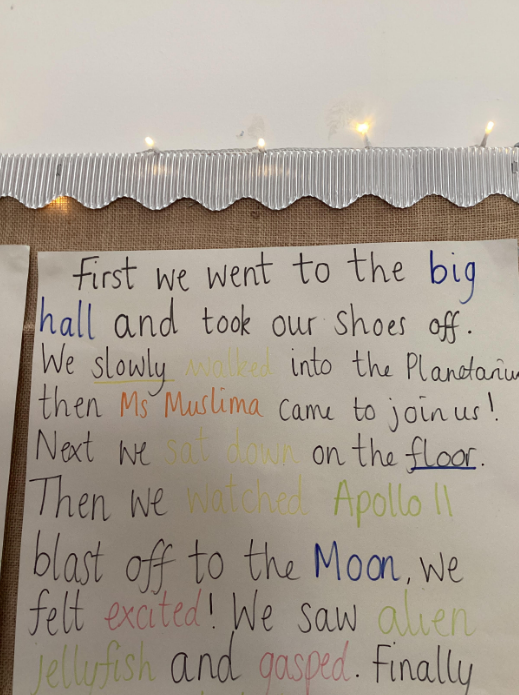 First we went to the big
hall and took our shoes off.
We slowly walked into the Planetarium
then Ms Muslima came to join us!
Next we sat down on the floor.
Then we watched Apollo 11
blast off to the Moon. We
felt excited! We saw alien
jellyfish and gasped. Finally